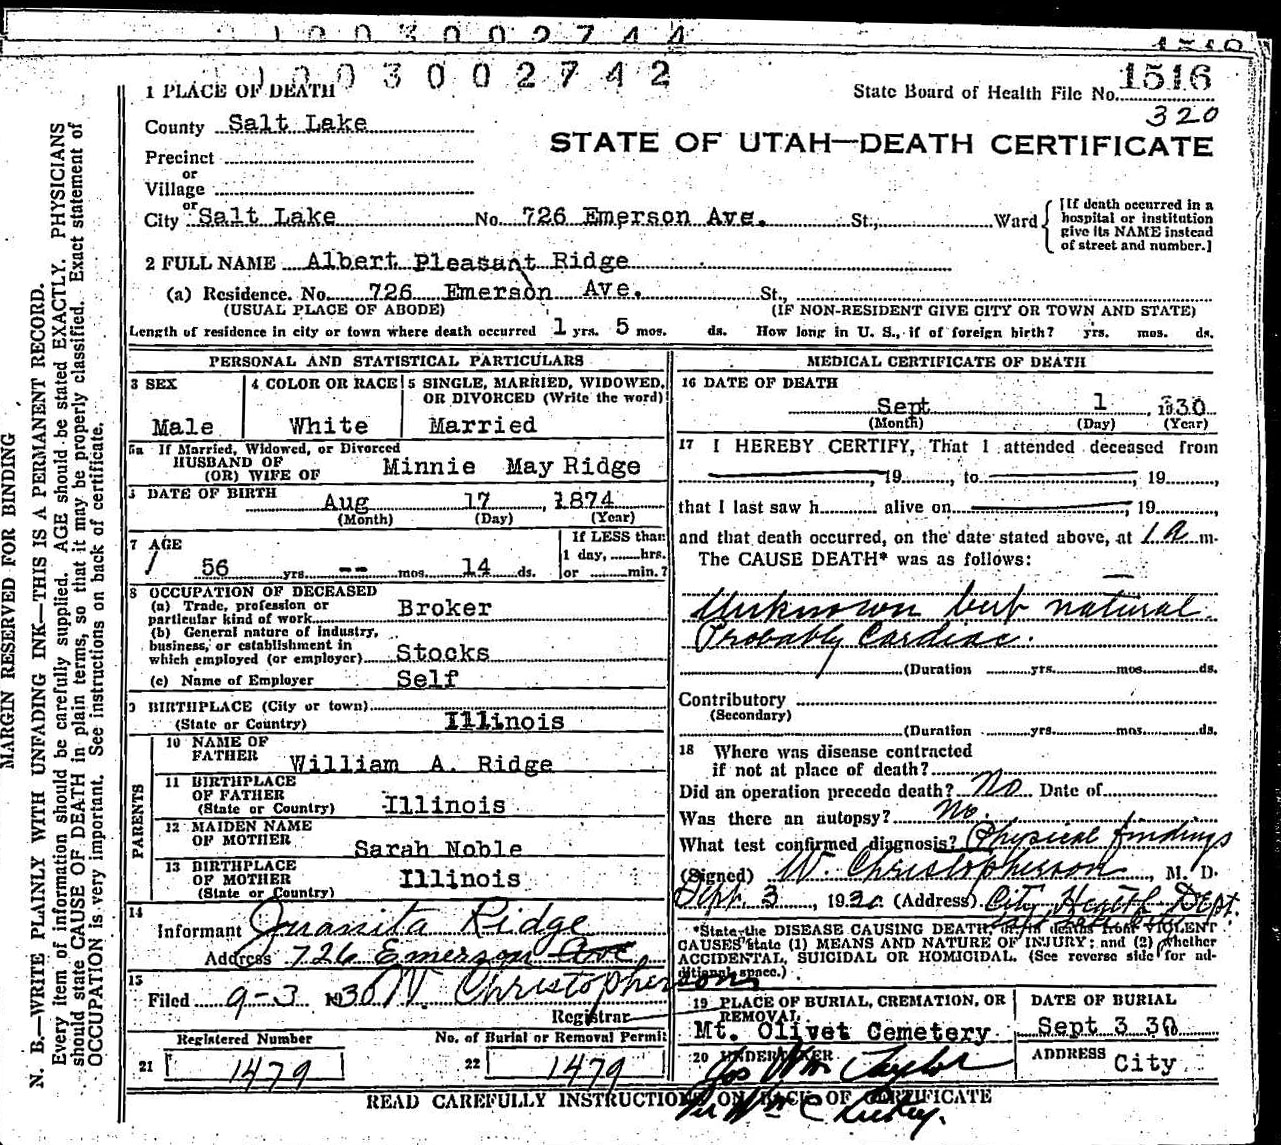 1003002744
1003002742
1 PLACE OF DEATH
State Board of Health File No. 1516
320
County Salt Lake
STATE OF UTAH—DEATH CERTIFICATE
Precinct
or
Village
or
City Salt Lake No. 726 Emerson Ave. St., Ward
[If death occurred in a
hospital or institution
give its NAME instead
of street and number.]
2 FULL NAME Albert Pleasant Ridge
(a) Residence. No. 726 Emerson Ave. St.,
(USUAL PLACE OF ABODE) (IF NON-RESIDENT GIVE CITY OR TOWN AND STATE)
Length of residence in city or town where death occurred 1 yrs. 5 mos. ds. How long in U. S., if of foreign birth? yrs. mos. ds.
PERSONAL AND STATISTICAL PARTICULARS
3 SEX
Male
4 COLOR OR RACE
White
5 SINGLE, MARRIED, WIDOWED,
OR DIVORCED (Write the word)
Married
5a If Married, Widowed, or Divorced
HUSBAND OF
(OR) WIFE OF Minnie May Ridge
DATE OF BIRTH Aug 17, 1874
(Month) (Day) (Year)
7 AGE
56 yrs. -- mos. 14 ds.
If LESS than
1 day, hrs.
or min.?
8 OCCUPATION OF DECEASED
(a) Trade, profession or
particular kind of work Broker
(b) General nature of industry,
business, or establishment in
which employed (or employer) Stocks
(c) Name of Employer Self
9 BIRTHPLACE (City or town)
(State or Country) Illinois
PARENTS
10 NAME OF
FATHER William A. Ridge
11 BIRTHPLACE
OF FATHER
(State or Country) Illinois
12 MAIDEN NAME
OF MOTHER Sarah Noble
13 BIRTHPLACE
OF MOTHER
(State or Country) Illinois
14
Informant Juanita Ridge
Address 726 Emerson Ave
15
Filed 9-3 1930 W. Christopherson
Registrar
Registered Number
21 1479
No. of Burial or Removal Permit
22 1479
MEDICAL CERTIFICATE OF DEATH
16 DATE OF DEATH
Sept 1, 1930
(Month) (Day) (Year)
17 I HEREBY CERTIFY, That I attended deceased from
, 19, to , 19,
that I last saw h alive on , 19,
and that death occurred, on the date stated above, at 1 A m.
The CAUSE DEATH* was as follows:
Unknown but natural.
Probably Cardiac.
(Duration yrs. mos. ds.
Contributory
(Secondary)
(Duration yrs. mos. ds.
18 Where was disease contracted
if not at place of death?
Did an operation precede death? No Date of
Was there an autopsy? No.
What test confirmed diagnosis? Physical findings
(Signed) W. Christopherson, M. D.
Sept. 3, 1930 (Address) City Health Dept.
*State the DISEASE CAUSING DEATH, or in deaths from VIOLENT
CAUSES state (1) MEANS AND NATURE OF INJURY; and (2) whether
ACCIDENTAL, SUICIDAL OR HOMICIDAL. (See reverse side for ad-
ditional space.)
19 PLACE OF BURIAL, CREMATION, OR
REMOVAL
Mt. Olivet Cemetery
DATE OF BURIAL
Sept 3 30
20 UNDERTAKER
Jos Wm Taylor
ADDRESS
City
READ CAREFULLY INSTRUCTIONS ON BACK OF CERTIFICATE
MARGIN RESERVED FOR BINDING
N. B.—WRITE PLAINLY WITH UNFADING INK—THIS IS A PERMANENT RECORD.
Every item of information should be carefully supplied. AGE should be stated EXACTLY. PHYSICIANS
should state CAUSE OF DEATH in plain terms, so that it may be properly classified. Exact statement of
OCCUPATION is very important. See instructions on back of certificate.